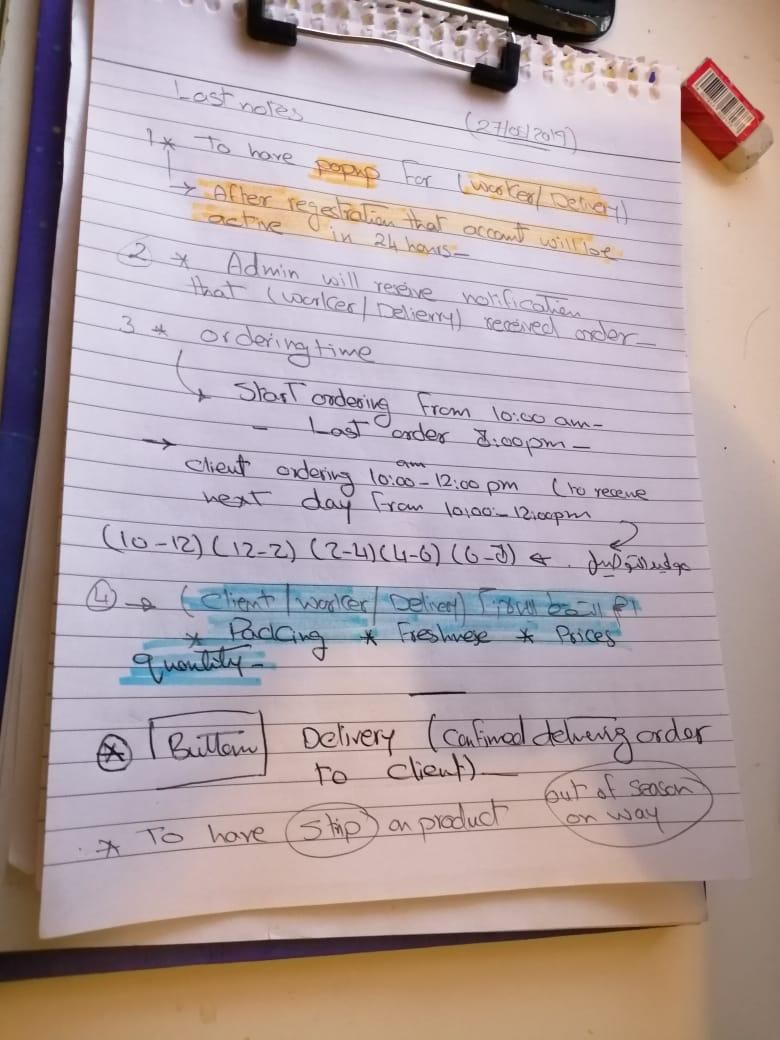 Last notes
(27/05/2019)
1* To have popup For (worker/Delivery)
→ After regestration that account will be
active in 24 hours-
2 * Admin will reseive notification
that (worker/Delierry) received order-
3 * ordering time
Start ordering From 10:00 am-
- Last order 8:00pm-
→ client ordering 10:00 am - 12:00 pm (to receve
next day From 10:00 - 12:00pm
(10-12) (12-2) (2-4) (4-6) (6-8) ←
4 → (Client/worker/Delivery)
* Packing * Freshnese * Prices
quantity-
* Buttom Delivery (Confirmed delivering order
to client)-
* To have Strip on product out of season
on way